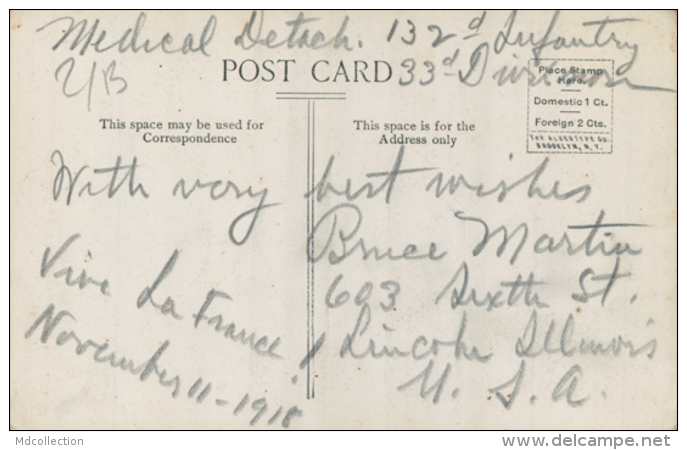 Medical Detach. 132d Infantry
33d Division
POST CARD
Place Stamp
Here.
Domestic 1 Ct.
Foreign 2 Cts.
THE ALBERTYPE CO.
BROOKLYN, N.Y.
This space may be used for
Correspondence
This space is for the
Address only
With very best wishes
Bruce Martin
603 Sixth St.
Lincoln Illinois
U. S. A.
Vive La France!
November 11-1918
Mdcollection
www.delcampe.net